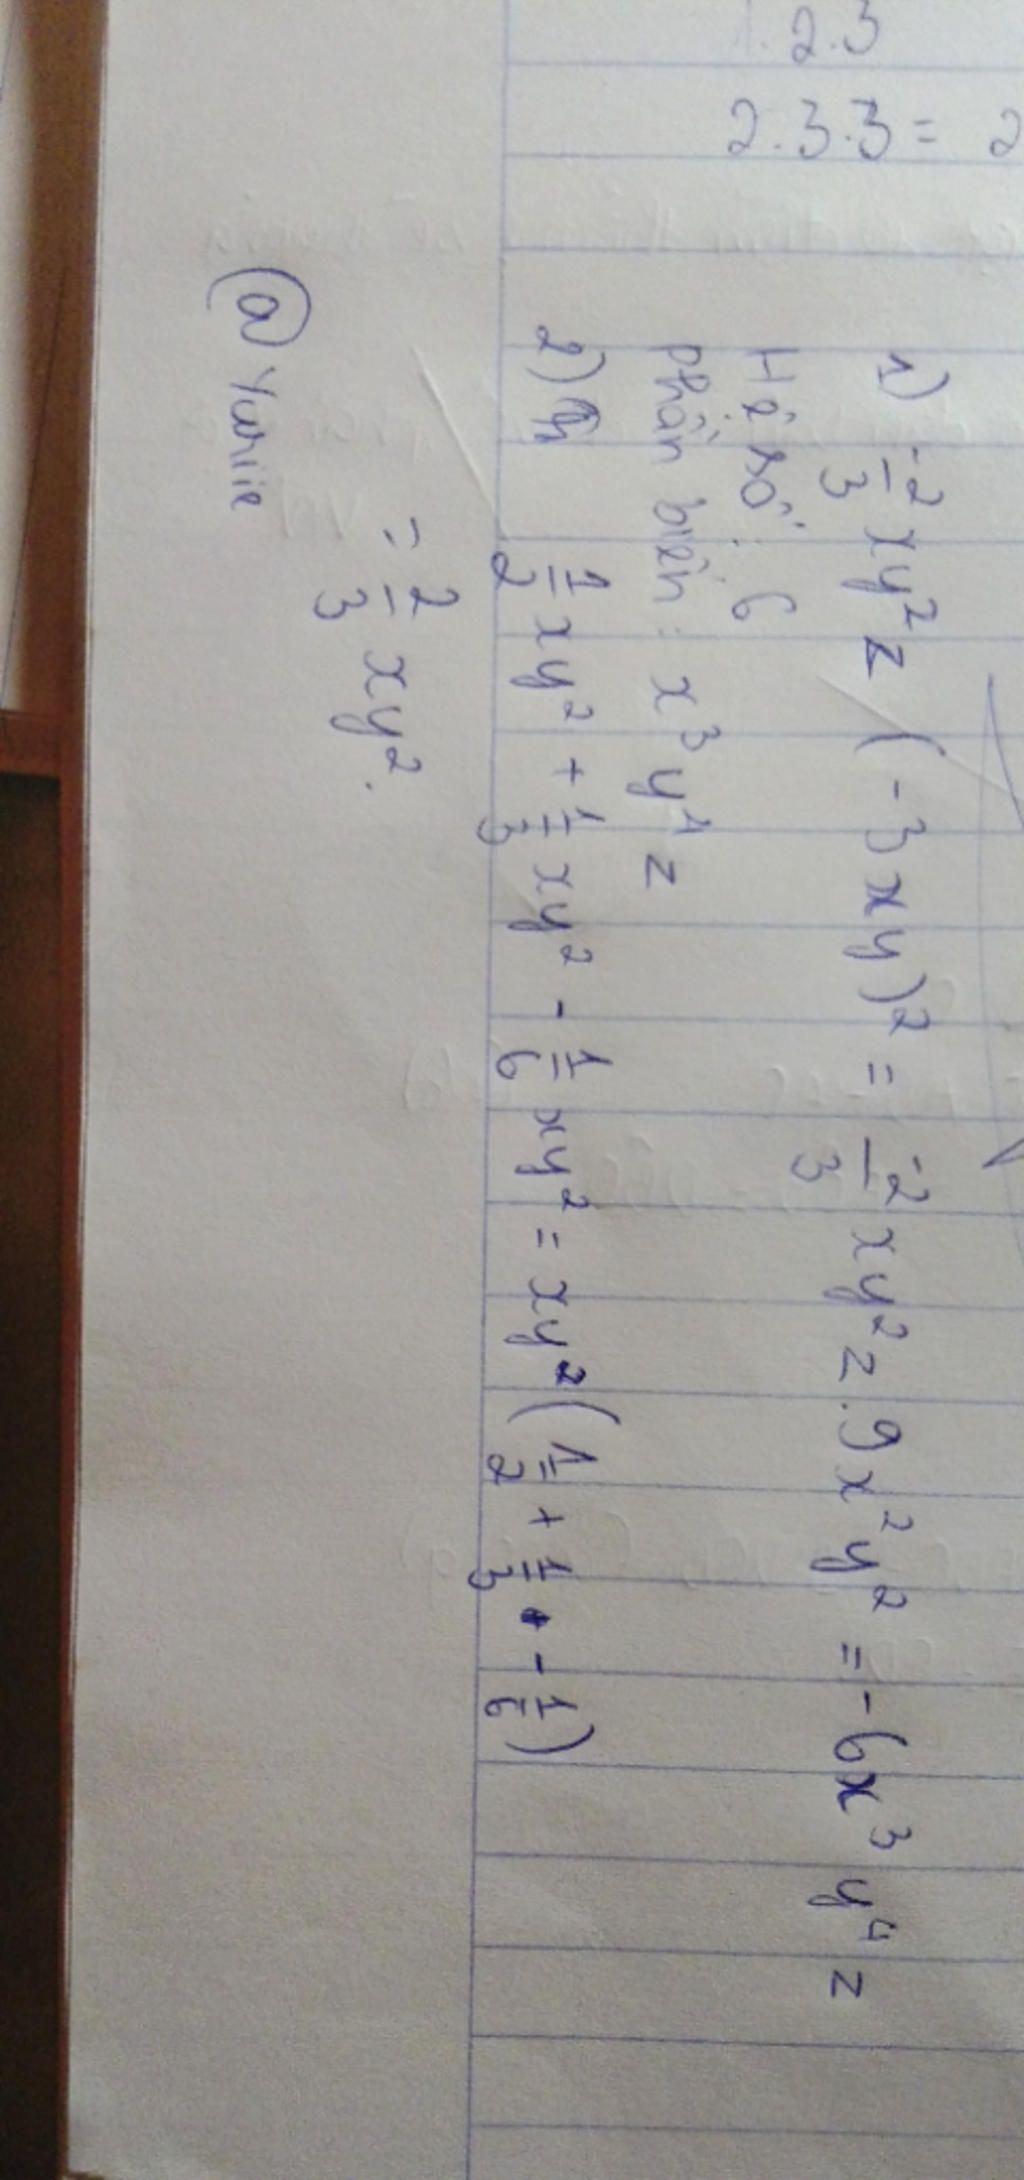 2.3
2.3.3 = 2
1) -2/3 xy²z (-3xy)² = -2/3 xy²z.9x²y² = -6x³y⁴z
Hệ số: 6
phần biến: x³y⁴z
2) 1/2 xy² + 1/3 xy² - 1/6 xy² = xy² (1/2 + 1/3 - 1/6)
= 2/3 xy².
@ Yuriie